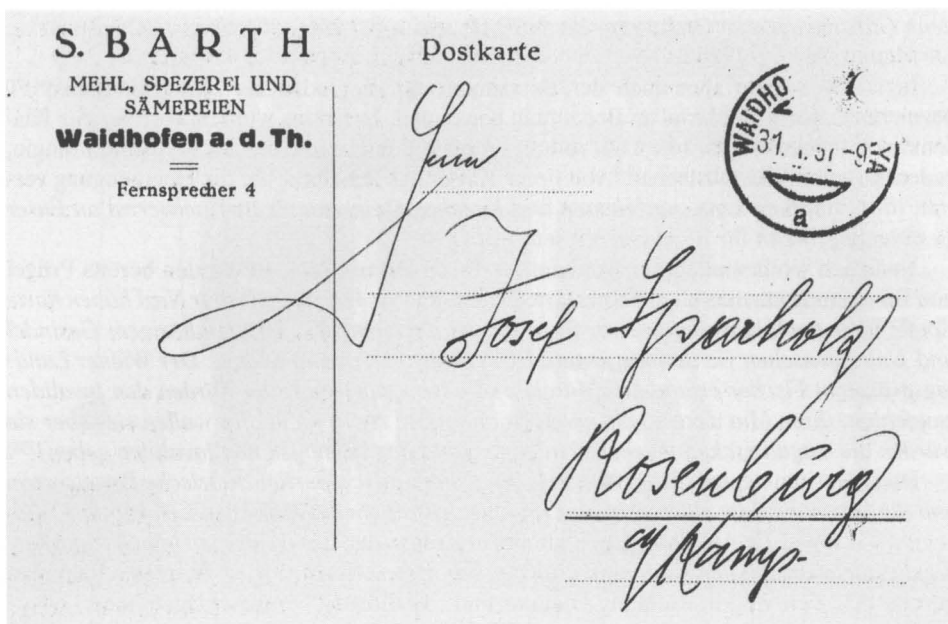 S. BARTH
MEHL, SPEZEREI UND
SÄMEREIEN
Waidhofen a. d. Th.
Fernsprecher 4
Postkarte
31
a
Herrn
Josef Sparholz
Rosenburg
a/Kamp